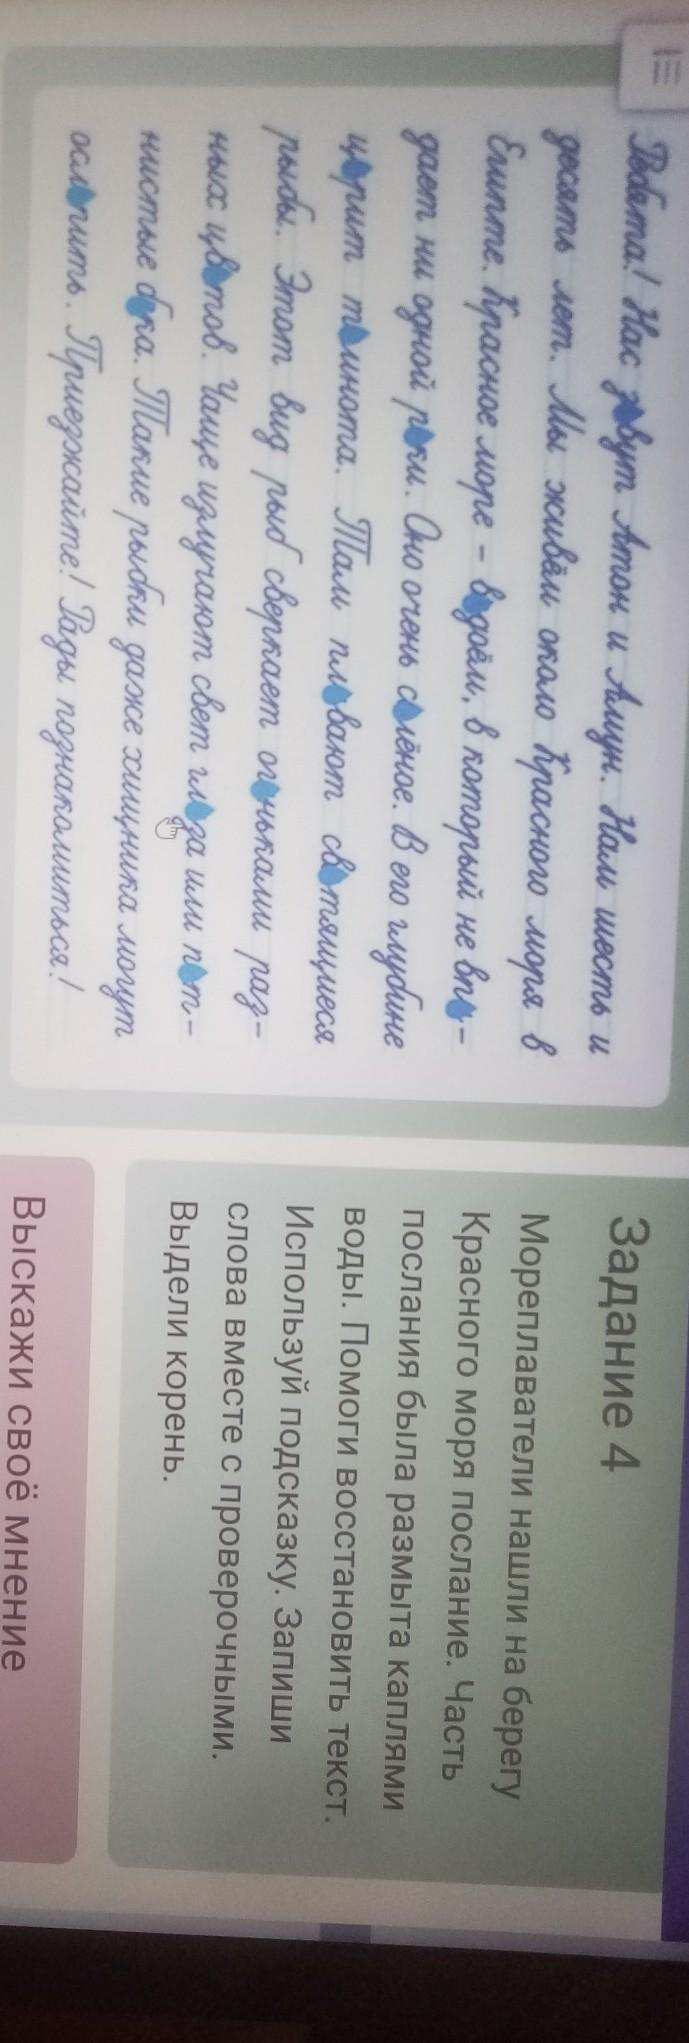 Ребята! Нас з вут Атон и Амун. Нам шесть и
десять лет. Мы живём около Красного моря в
Египте. Красное море - в доём, в который не вп -
дает ни одной р ки. Оно очень с лёное. В его глубине
ц рит т мнота. Там пл вают св тящиеся
рыбы. Этот вид рыб сверкает ог ньками раз-
ных цв тов. Чаще излучают свет гл за или п т-
нистые б ка. Такие рыбки даже хищника могут
осл пить. Приезжайте! Рады познакомиться!
Задание 4
Мореплаватели нашли на берегу
Красного моря послание. Часть
послания была размыта каплями
воды. Помоги восстановить текст.
Используй подсказку. Запиши
слова вместе с проверочными.
Выдели корень.
Выскажи своё мнение